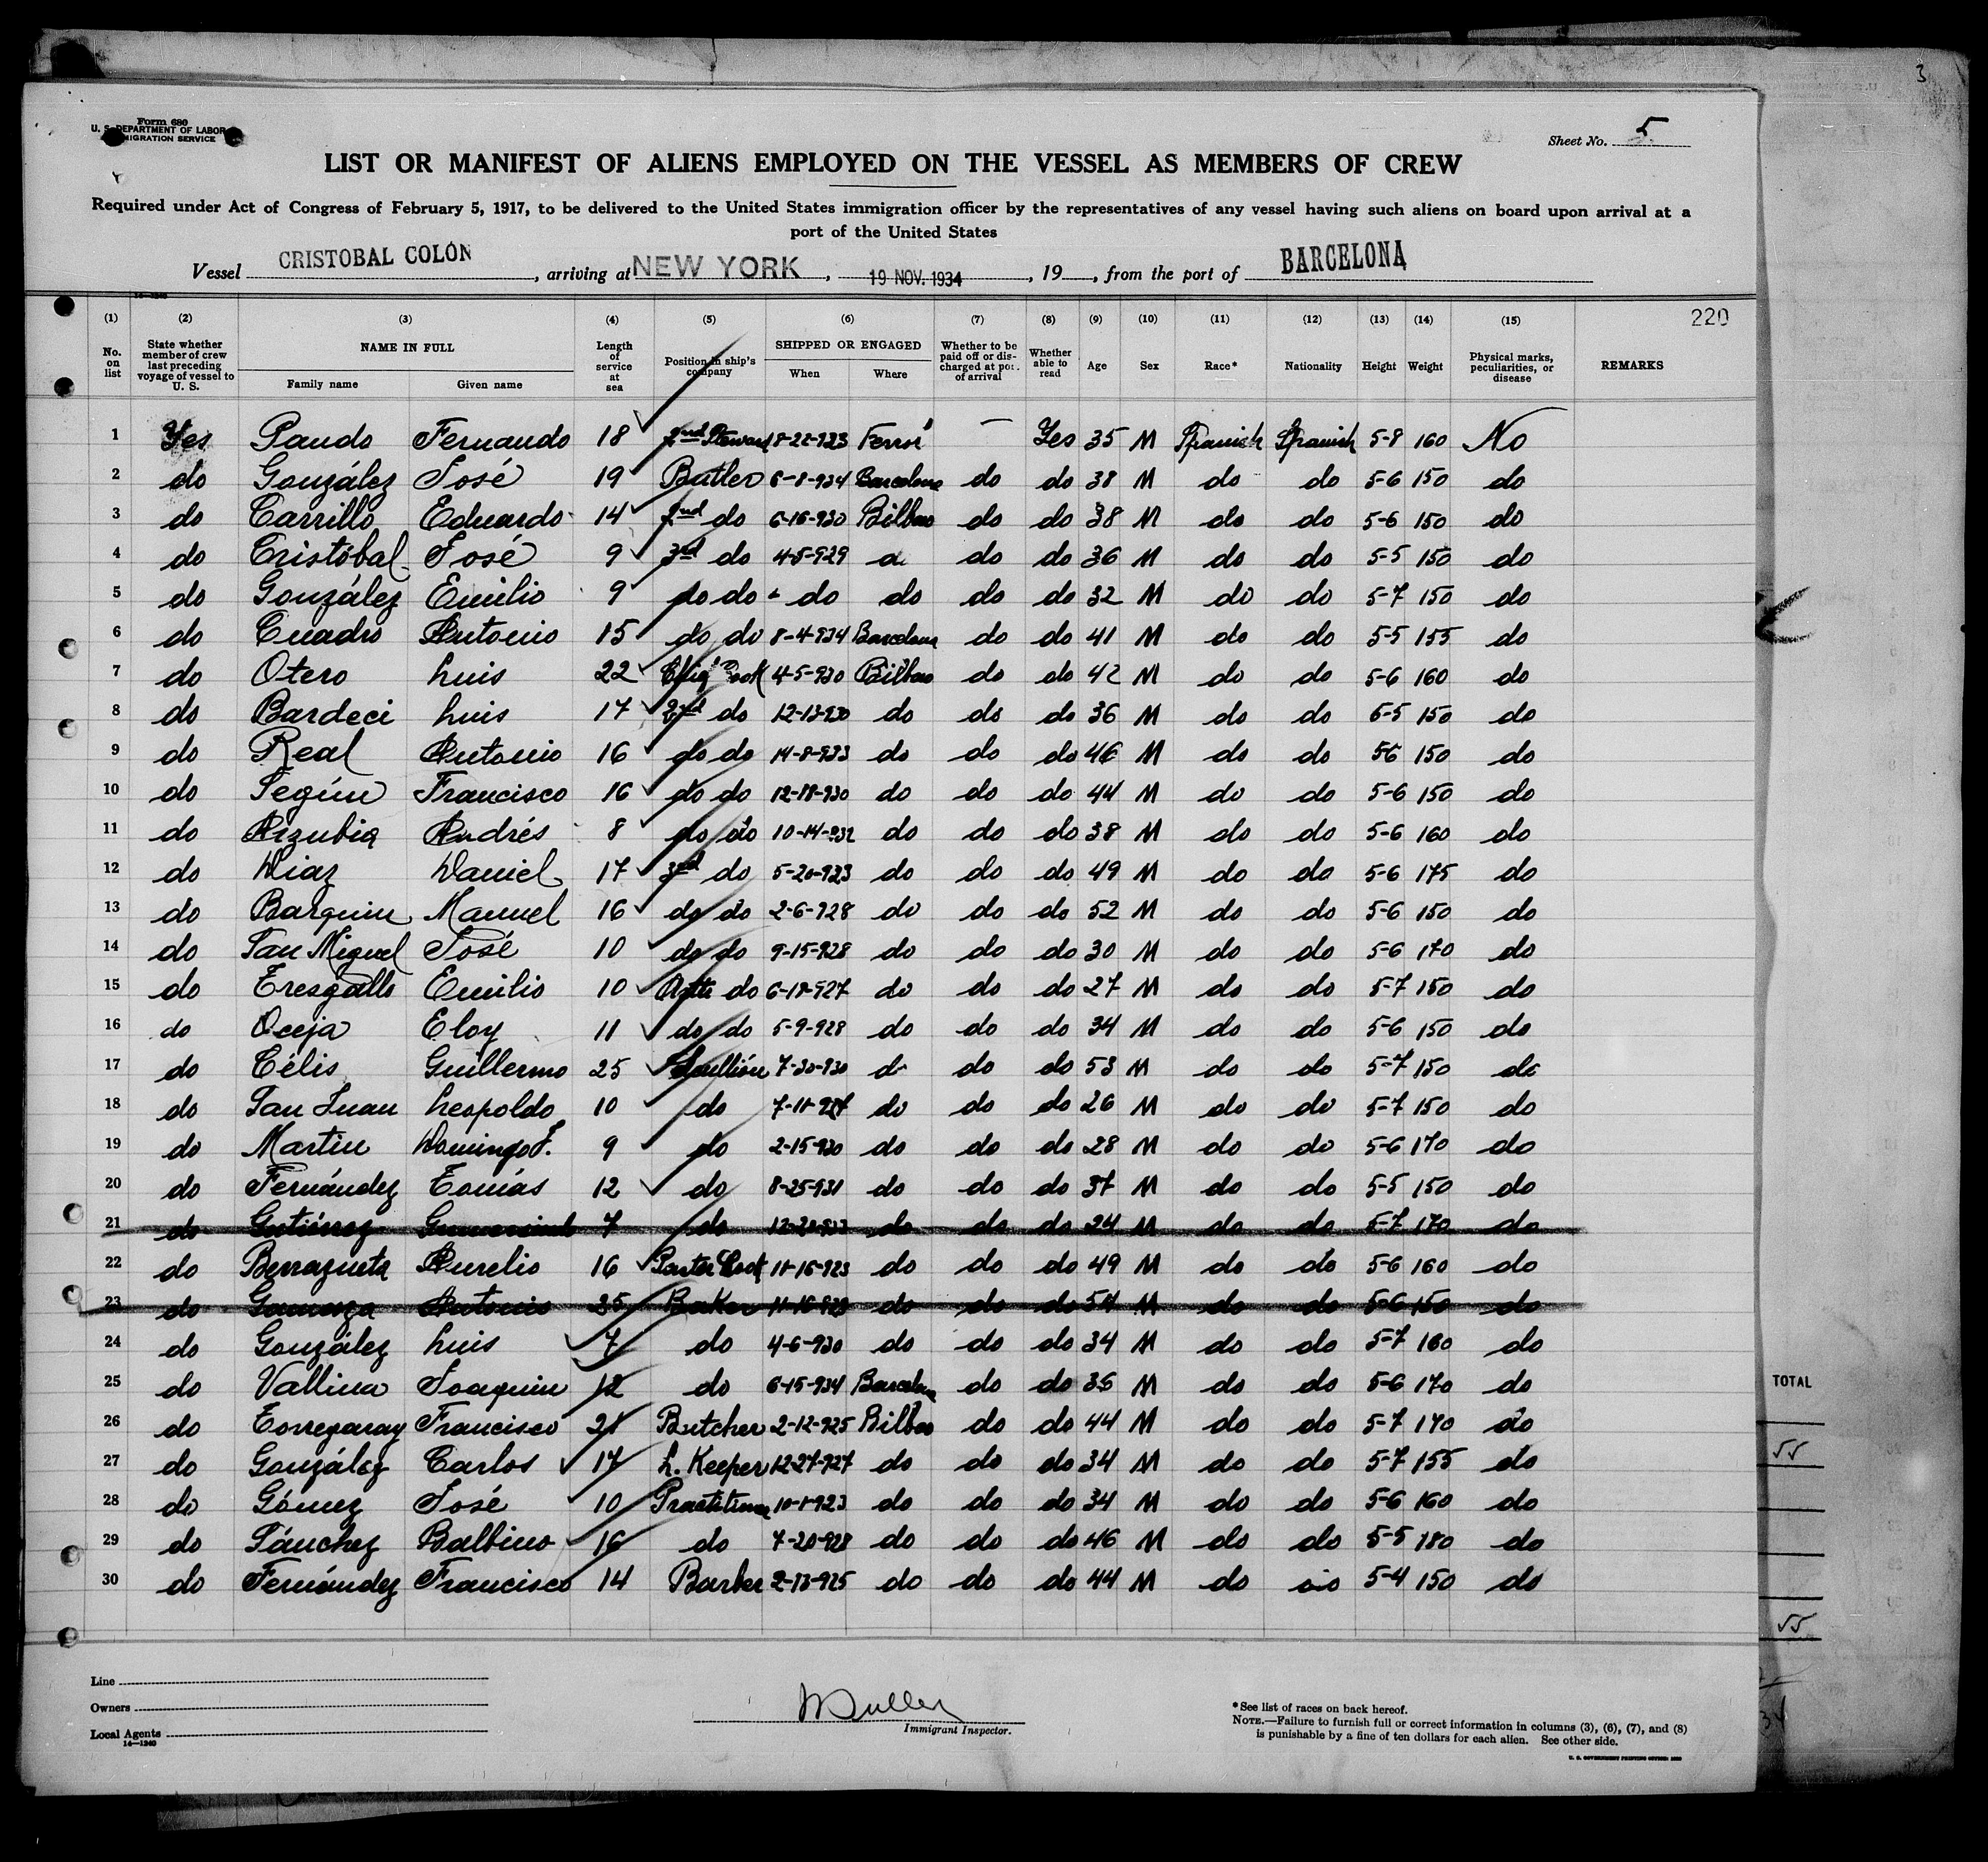 3
Form 680
U. S. DEPARTMENT OF LABOR
IMMIGRATION SERVICE
Sheet No. 5.
LIST OR MANIFEST OF ALIENS EMPLOYED ON THE VESSEL AS MEMBERS OF CREW
Required under Act of Congress of February 5, 1917, to be delivered to the United States immigration officer by the representatives of any vessel having such aliens on board upon arrival at a
port of the United States
Vessel CRISTOBAL COLÓN, arriving at NEW YORK, 19 NOV. 1934, 19, from the port of BARCELONA
14—1240
220
(1) (2) (3) (4) (5) (6) (7) (8) (9) (10) (11) (12) (13) (14) (15)
No. on list State whether member of crew last preceding voyage of vessel to U. S. NAME IN FULL Family name Given name Length of service at sea Position in ship's company SHIPPED OR ENGAGED When Where Whether to be paid off or discharged at port of arrival Whether able to read Age Sex Race* Nationality Height Weight Physical marks, peculiarities, or disease REMARKS
1 Yes Pando Fernando 18 2nd Steward 8-22-923 Ferrol — Yes 35 M Spanish Spanish 5-8 160 No
2 do González José 19 Butler 6-8-934 Barcelona do do 38 M do do 5-6 150 do
3 do Carrillo Eduardo 14 2nd do 6-16-930 Bilbao do do 38 M do do 5-6 150 do
4 do Cristóbal José 9 3rd do 4-5-929 do do 36 M do do 5-5 150 do
5 do González Emilio 9 do do do do do do 32 M do do 5-7 150 do
6 do Cuadro Antonio 15 do do 8-4-934 Barcelona do do 41 M do do 5-5 155 do
7 do Otero Luis 22 Cook 4-5-930 Bilbao do do 42 M do do 5-6 160 do
8 do Bardeci Luis 17 2nd do 12-13-930 do do do 36 M do do 5-5 150 do
9 do Real Antonio 16 do do 14-8-933 do do do 46 M do do 56 150 do
10 do Segúin Francisco 16 do do 12-18-930 do do do 44 M do do 5-6 150 do
11 do Arzubia Andrés 8 do do 10-14-932 do do do 38 M do do 5-6 160 do
12 do Diaz Daniel 17 3rd do 5-20-923 do do do 49 M do do 5-6 175 do
13 do Barquin Manuel 16 do do 2-6-928 do do do 52 M do do 5-6 150 do
14 do San Miguel José 10 do do 9-15-928 do do do 30 M do do 5-6 170 do
15 do Tresgallo Emilio 10 do 6-18-927 do do do 27 M do do 5-7 150 do
16 do Oceja Eloy 11 do do 5-9-928 do do do 34 M do do 5-6 150 do
17 do Célis Guillermo 25 Scullion 7-30-930 do do do 53 M do do 5-7 150 do
18 do San Juan Leopoldo 10 do 7-11-927 do do do 26 M do do 5-7 150 do
19 do Martin Domingo F. 9 do 2-15-930 do do do 28 M do do 5-6 170 do
20 do Fernández Tomás 12 do 8-25-931 do do do 37 M do do 5-5 150 do
21 do Gutiérrez 7 do do do do 24 M do do 5-7 170 do
22 do Berrazueta Aurelio 16 Cook 11-16-923 do do do 49 M do do 5-6 160 do
23 do Antonio 25 Baker 11-16-923 do do do 54 M do do 5-6 150 do
24 do González Luis 7 do 4-6-930 do do do 34 M do do 5-7 160 do
25 do Vallina Joaquin 12 do 6-15-934 Barcelona do do 36 M do do 5-6 170 do
26 do Torregaray Francisco 21 Butcher 2-12-925 Bilbao do do 44 M do do 5-7 170 do
27 do González Carlos 17 L. Keeper 12-27-927 do do do 34 M do do 5-7 155 do
28 do Gómez José 10 10-1-923 do do do 34 M do do 5-6 160 do
29 do Sánchez Balbino 16 do 7-20-928 do do do 46 M do do 5-5 180 do
30 do Fernández Francisco 14 Barber 2-13-925 do do do 44 M do do 5-4 150 do
TOTAL
55
55
Line
Owners
Local Agents
14—1240
Immigrant Inspector.
*See list of races on back hereof.
NOTE.—Failure to furnish full or correct information in columns (3), (6), (7), and (8)
is punishable by a fine of ten dollars for each alien. See other side.
U. S. GOVERNMENT PRINTING OFFICE